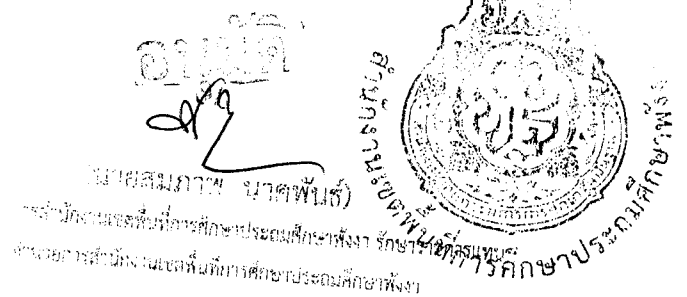 อนุมัติ
(นายสมภาพ นาคพันธ์)
สำนักงานเขตพื้นที่การศึกษาประถมศึกษาพังงา รักษาราชการแทน
ผู้อำนวยการสำนักงานเขตพื้นที่การศึกษาประถมศึกษาพังงา
สำนักงานเขตพื้นที่การศึกษาประถมศึกษาพังงา